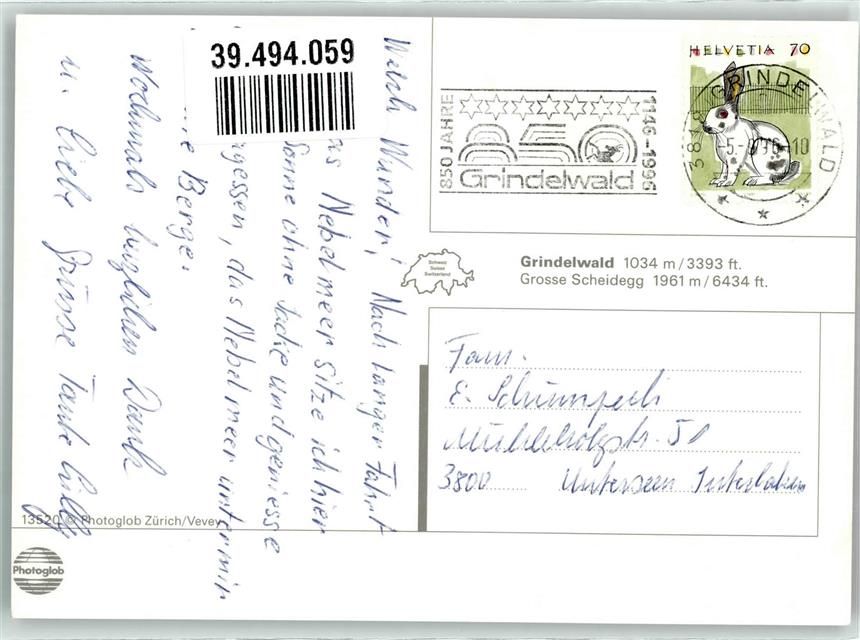 39.494.059
Welch Wunder! Nach langer Fahrt
Nebelmeer sitze ich hier
Sonne ohne Jacke und geniesse
gessen, das Nebelmeer unter mir
Berge.
Nochmals herzlichen Dank
u. liebe Grüsse Tante Lilly
13520 © Photoglob Zürich/Vevey
Photoglob
850 JAHRE
850
Grindelwald
1146-1996
HELVETIA 70
3818 GRINDELWALD
Schweiz
Suisse
Switzerland
Grindelwald 1034 m/3393 ft.
Grosse Scheidegg 1961 m/6434 ft.
Fam.
E.
Mühleholzstr. 51
3800 Unterseen Interlaken